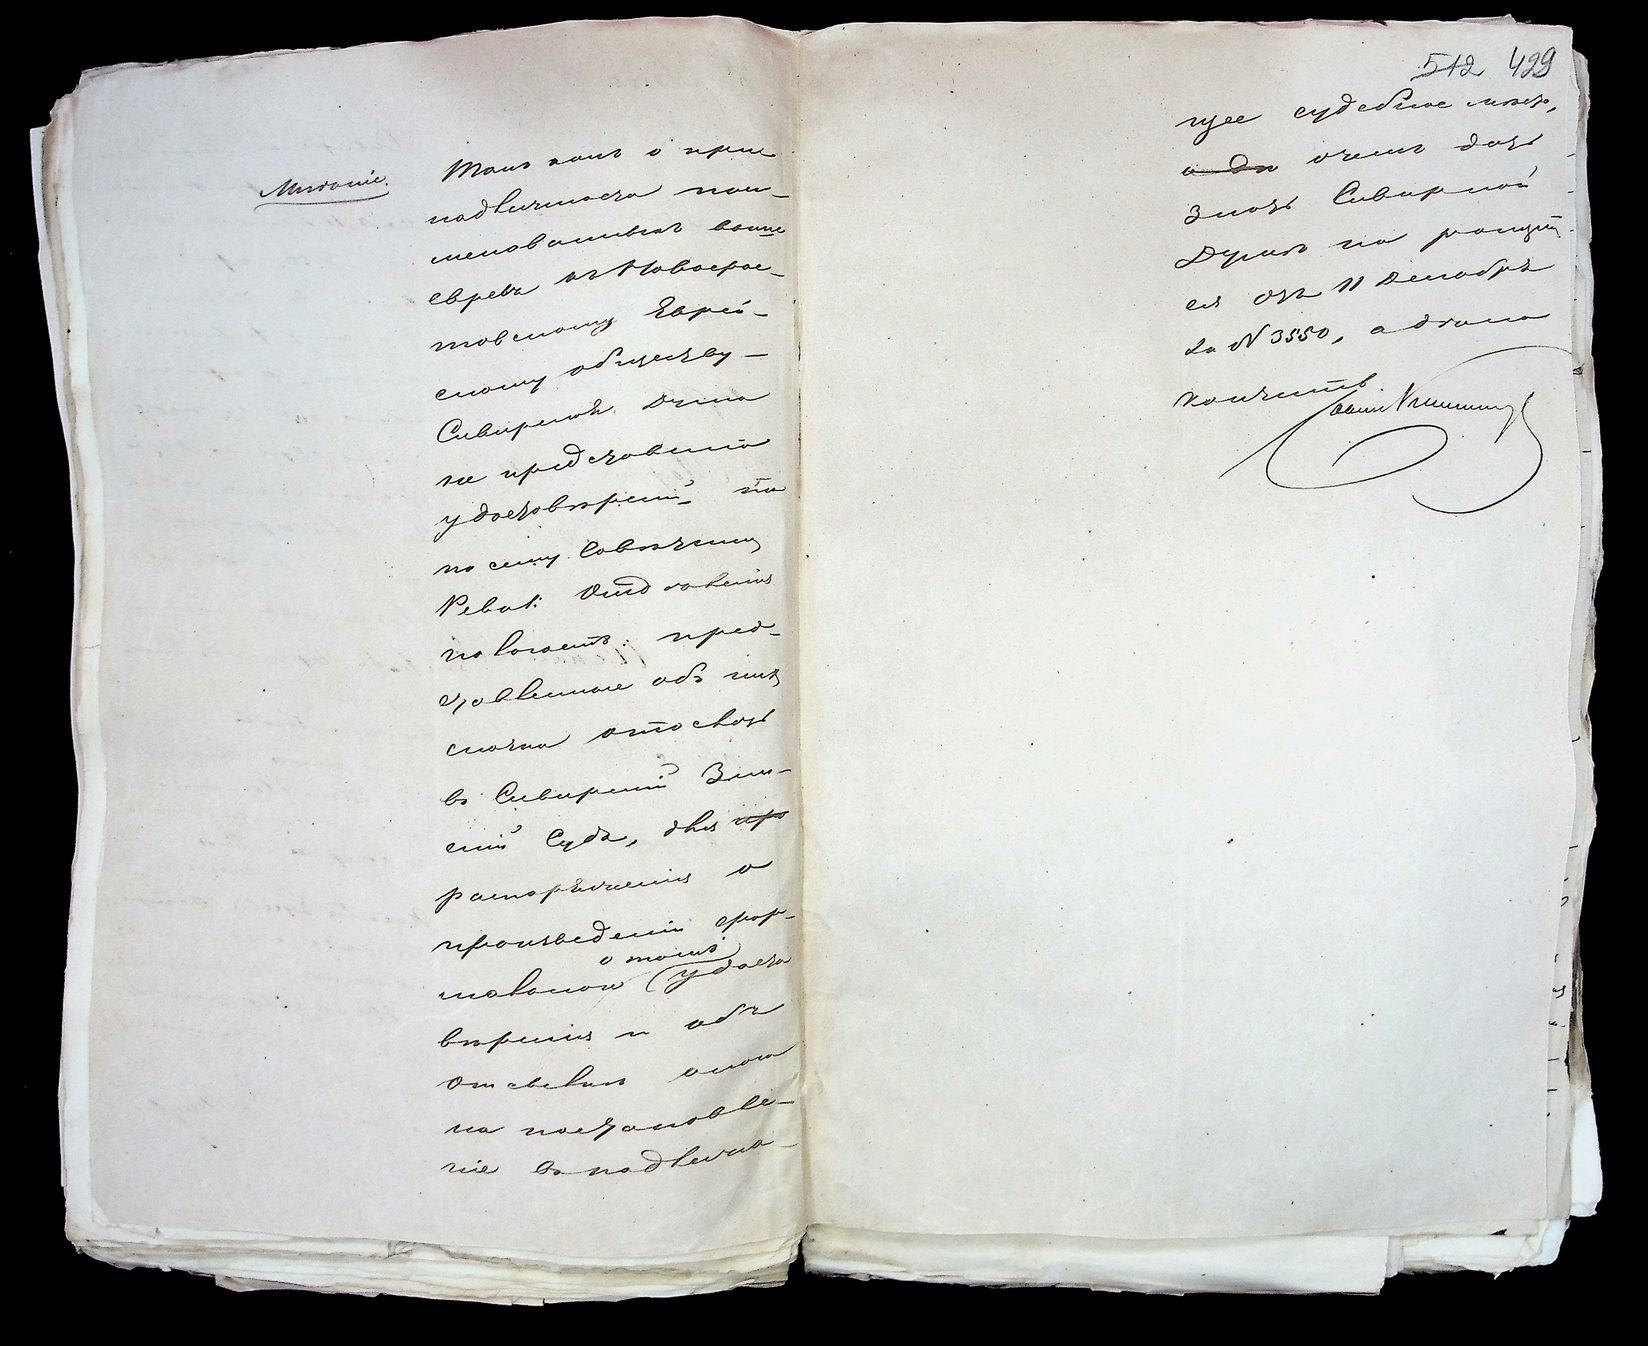 Мнѣніе.
Такъ какъ о при
надлежности пои-
менованныхъ выше
евреевъ къ Новокре-
товскому Еврей-
скому обществу -
Сквирская Дума
не представила
удостовѣренія то
по сему Совѣтникъ
Ревиз: Отдѣленія
полагаетъ пред-
ставленное объ нихъ
отослать
въ Сквирскій Зем-
скій Судъ, для про
распоряженія о
произведеніи фор-
мальнаго о томъ удосто
вѣренія и объ
отсылкѣ онаго
на постановле-
ніе въ надлежа-
512 429
щее судебное мѣсто,
о чемъ дать
знать Сквирской
Думѣ на рапортъ
ея отъ 11 Декабря
за № 3550, а дѣло
кончить.